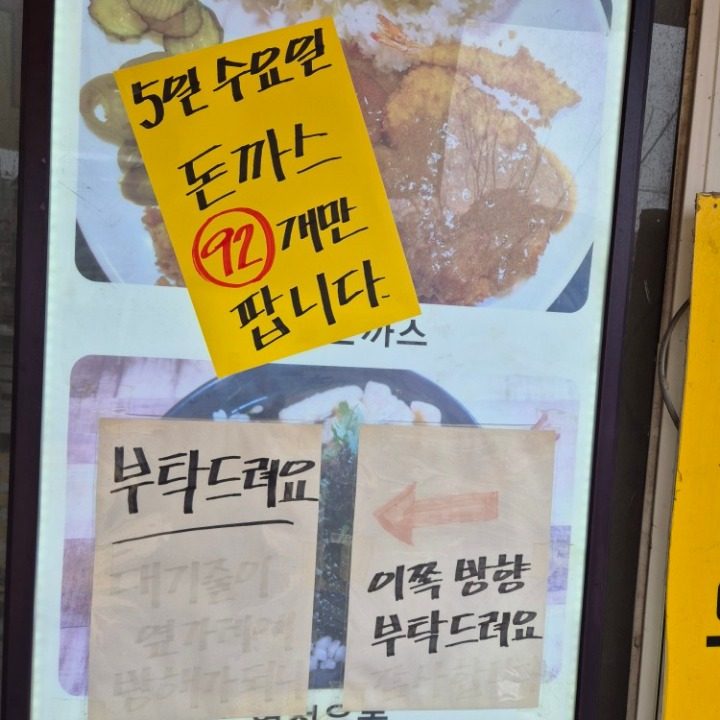 5일 수요일
돈까스
92개만
팝니다.
까스
부탁드려요
대기줄이
옆가게에
방해가되니
이쪽 방향
부탁드려요